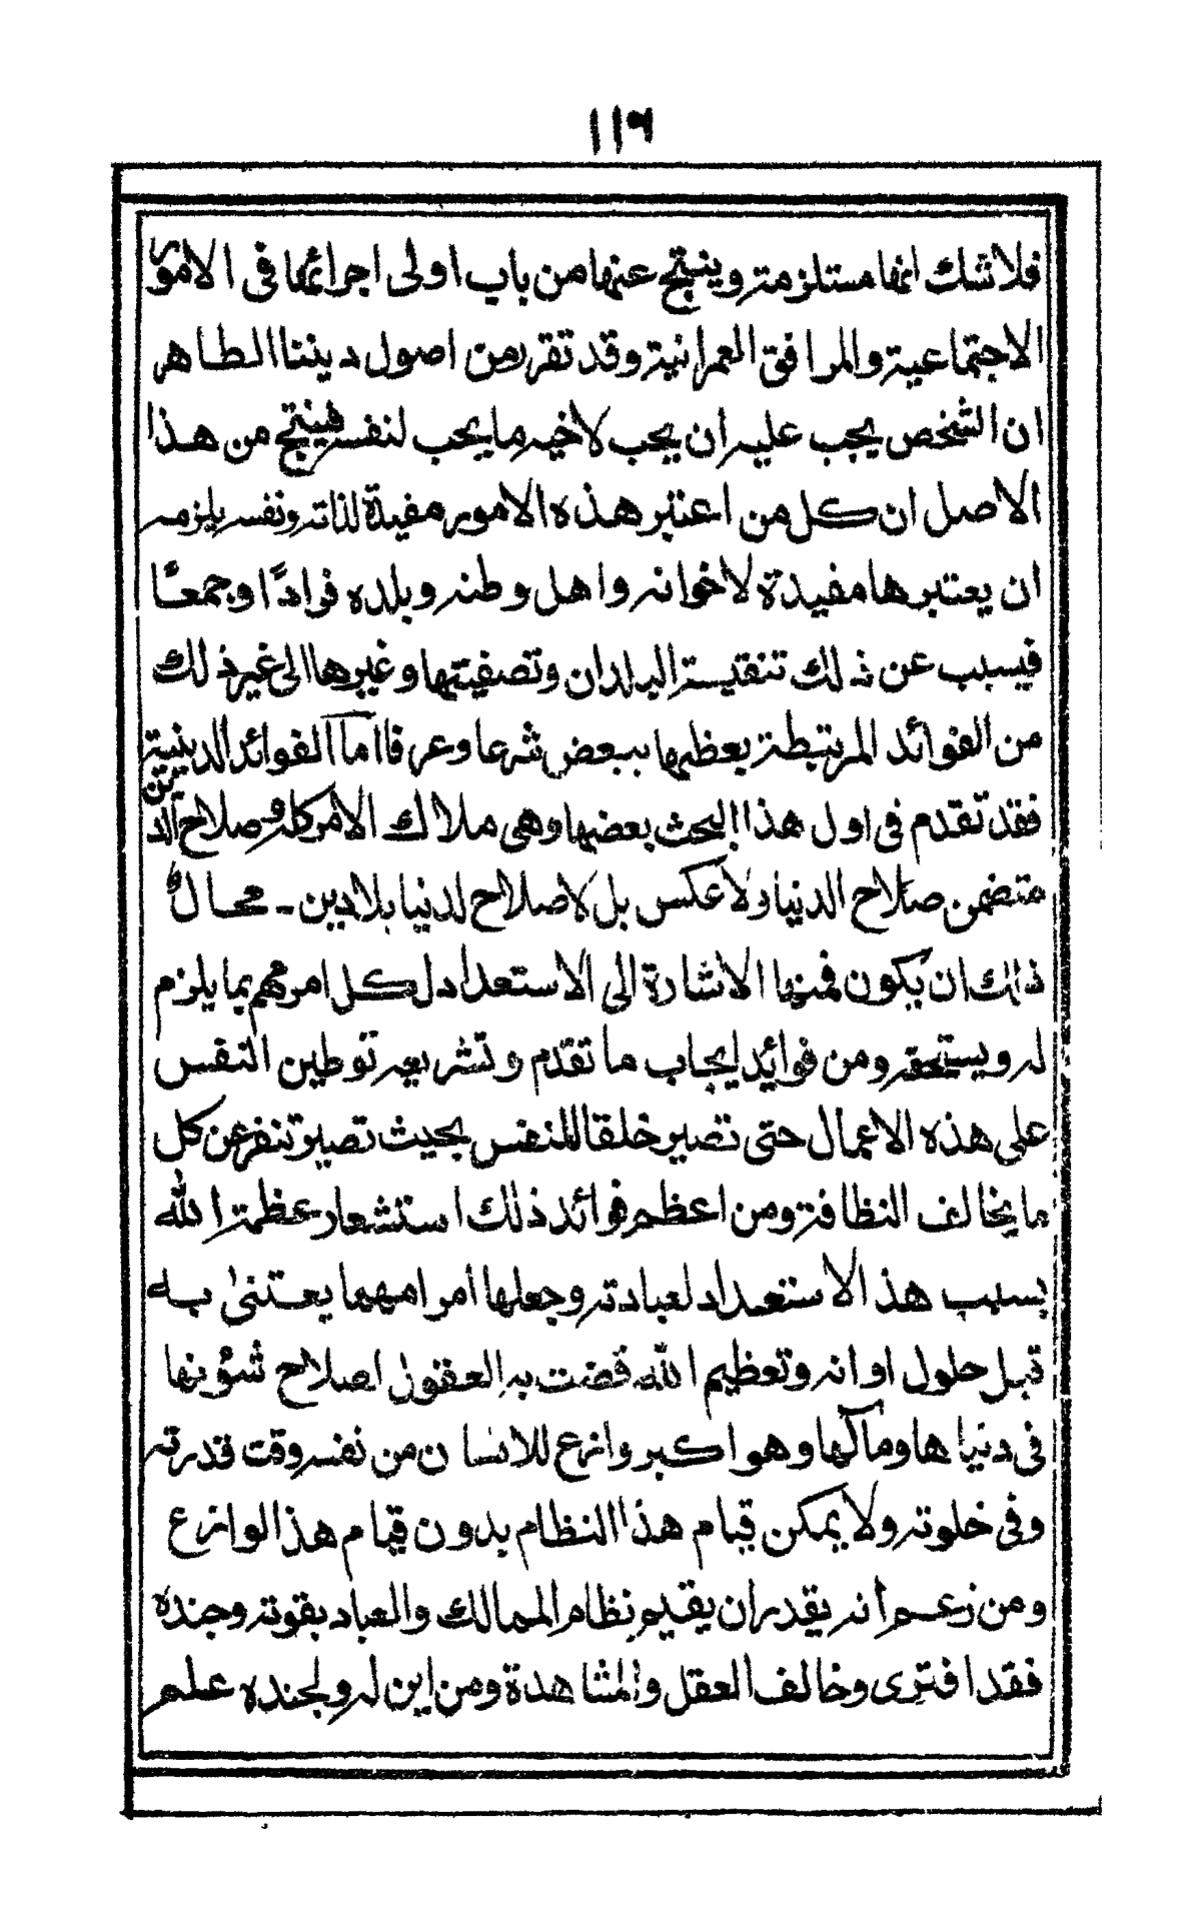 ١١٩
فلاشك انها مستلزمة وينتج عنها من باب اولى اجرائها فى الامور
الاجتماعية والمرافق العمرانية وقد تقرر من اصول ديننا الطاهر
ان الشخص يجب عليه ان يحب لاخيه ما يحب لنفسه فينتج من هذا
الاصل ان كل من اعتبر هذه الامور مفيدة لذاته ونفسه يلزمه
ان يعتبرها مفيدة لاخوانه واهل وطنه وبلده فرادًا وجمعًا
فيسبب عن ذلك تنقية البلدان وتصفيتها وغيرها الى غير ذلك
من الفوائد المرتبطة بعظها ببعض شرعا وعرفا اما الفوائد الدينية
فقد تقدم فى اول هذا البحث بعضها وهى ملاك الامر كله وصلاح الدين
متضمن صلاح الدنيا ولا عكس بل لا صلاح لدنيا بلا دين - محال
ذلك ان يكون فمنها الاشارة الى الاستعداد لكل امر مهم بما يلزم
له ويستحقه ومن فوائد ايجاب ما تقدم وتشريعه توطين النفس
على هذه الاعمال حتى تصير خلقا للنفس بحيث تصير تنفر عن كل
ما يخالف النظافة ومن اعظم فوائد ذلك استشعار عظمة الله
بسبب هذ الاستعداد لعبادته وجعلها امرا مهما يعتنى به
قبل حلول اوانه وتعظيم الله قضت به العقول اصلاح شؤنها
فى دنياها ومآلها وهو اكبر وازع للانسان من نفسه وقت قدرته
وفى خلوته ولا يمكن قيام هذا النظام بدون قيام هذ الوازع
ومن زعم انه يقدر ان يقيم نظام الممالك والعباد بقوته وجنده
فقد افترى وخالف العقل والمشاهدة ومن اين له ولجنده علم